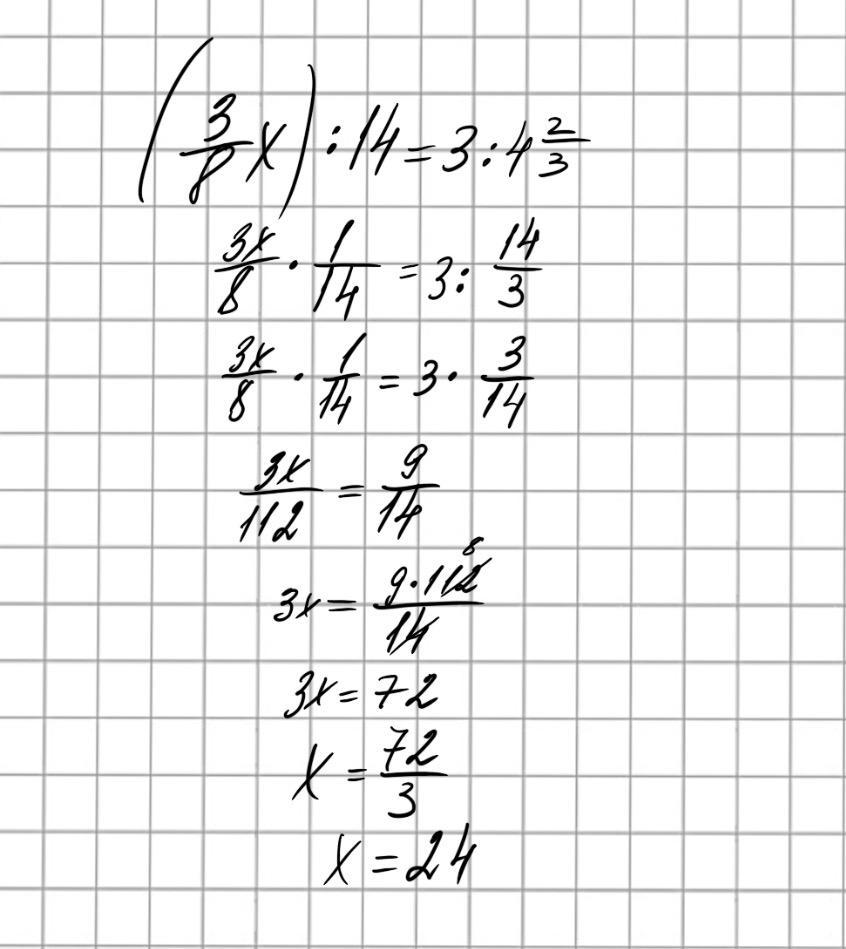 (3/8 x) : 14 = 3 : 4 2/3
3x/8 · 1/14 = 3 : 14/3
3x/8 · 1/14 = 3 · 3/14
3x/112 = 9/14
3x = 9·112/14 8
3x = 72
x = 72/3
x = 24